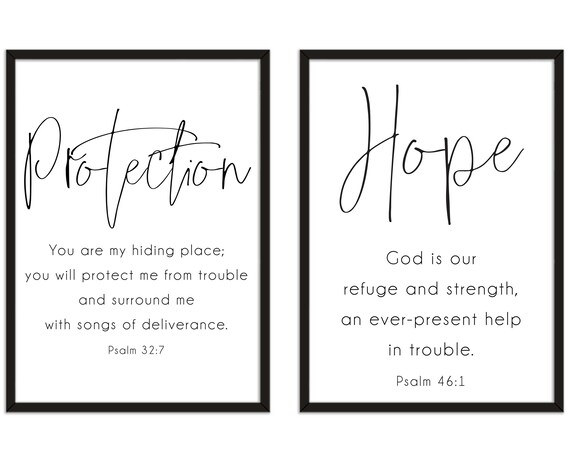 Protection
You are my hiding place;
you will protect me from trouble
and surround me
with songs of deliverance.
Psalm 32:7
Hope
God is our
refuge and strength,
an ever-present help
in trouble.
Psalm 46:1